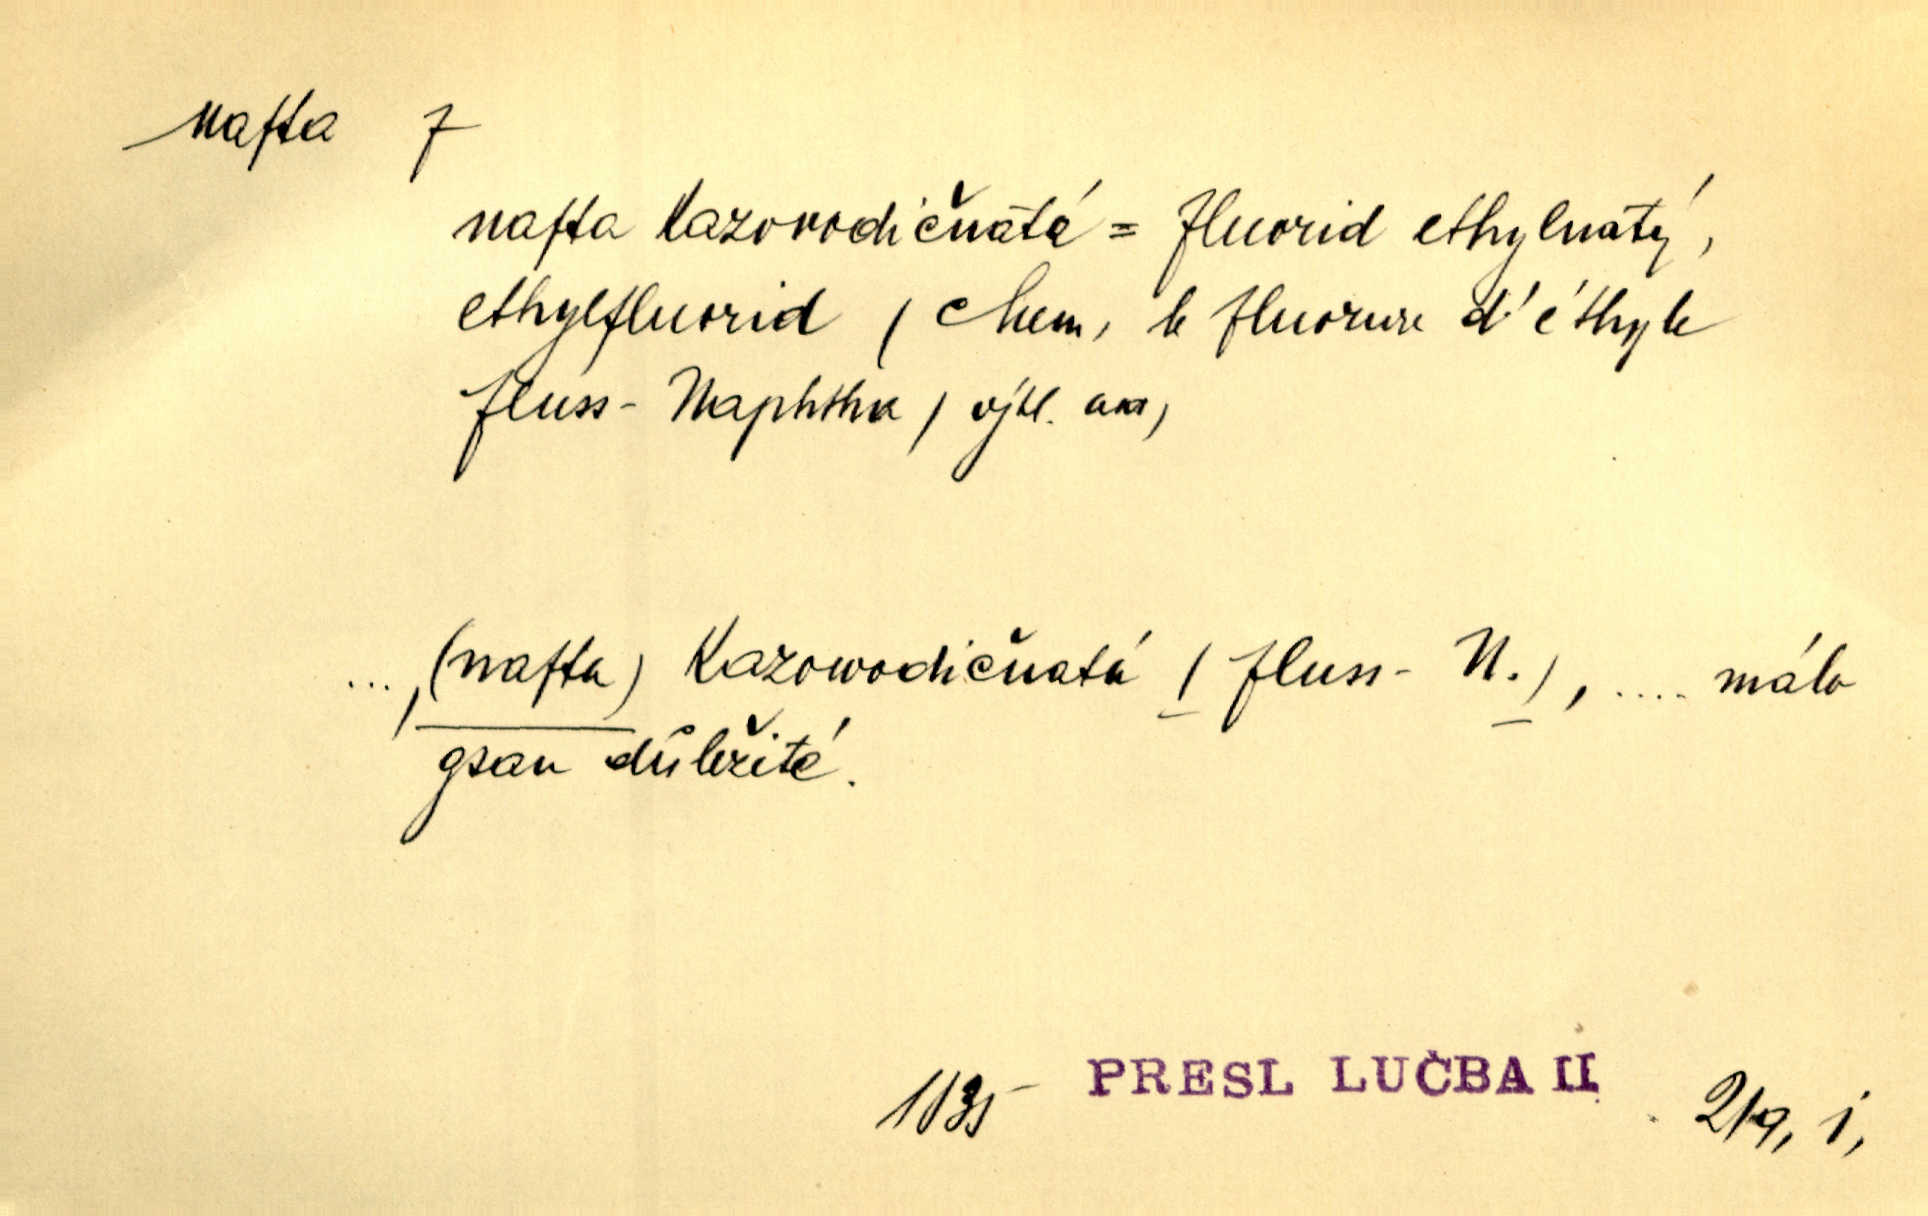 nafta f
nafta kazovodičnatá = fluorid ethylnatý,
ethylfluorid (chem, le fluorure d'éthyle
fluss- Naphtha) výkl. am,
..., (nafta) kazowodičnatá (fluss- N.), .... málo
gsau důležité.
1835 PRESL LUČBA II 219, j,